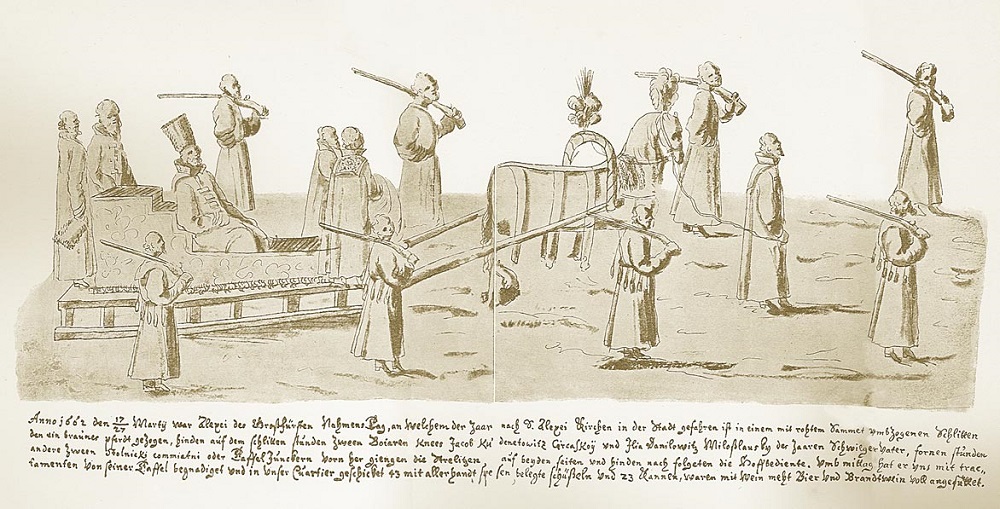 Anno 1662 den 17/27 Martij war Alexei des Großfürsten Nahmens Tag, an welchem der Zaar nach S. Alexei Kirchen in der Stadt gefahren ist in einem mit rohtem Sammet umbzogenen Schlitten
den ein braunes pferdt gezogen, hinden auf dem schlitten stunden zween Boiaren Knees Jacob Ku denetowitz Circaskoÿ und Ilia Danilowitz Miloßlausky des Zaaren Schwigervater, fornen stunden
andere zween Stolnicki comnatni oder Taffel Junckern vorn her giengen die Strelitzen auf beyden seiten und hinden nach folgeten die Hoffbediente. Umb mittag hat er uns mit trac,,
tamenten von seiner Taffel begnadiget und in unser Quartier geschicket 43 mit allerhandt sen, belegte schüßeln und 23 Kannen, waren mit Wein meht Bier und Brandtwein voll angefüllet.